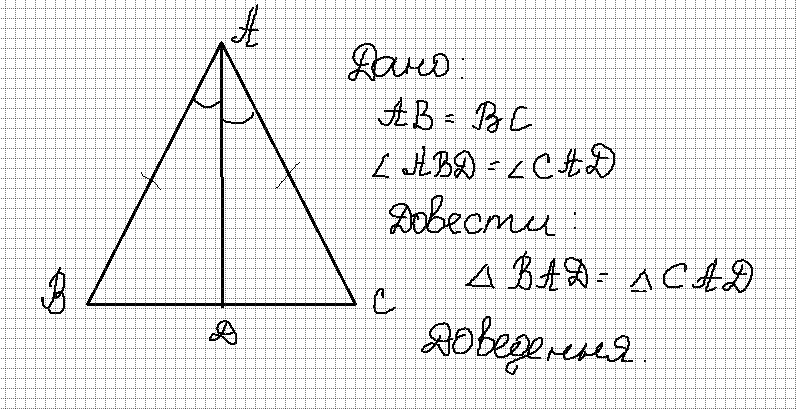 A
Дано:
AB = BC
∠ABD = ∠CAD
Довести:
△BAD = △CAD
B
C
D
Доведення.